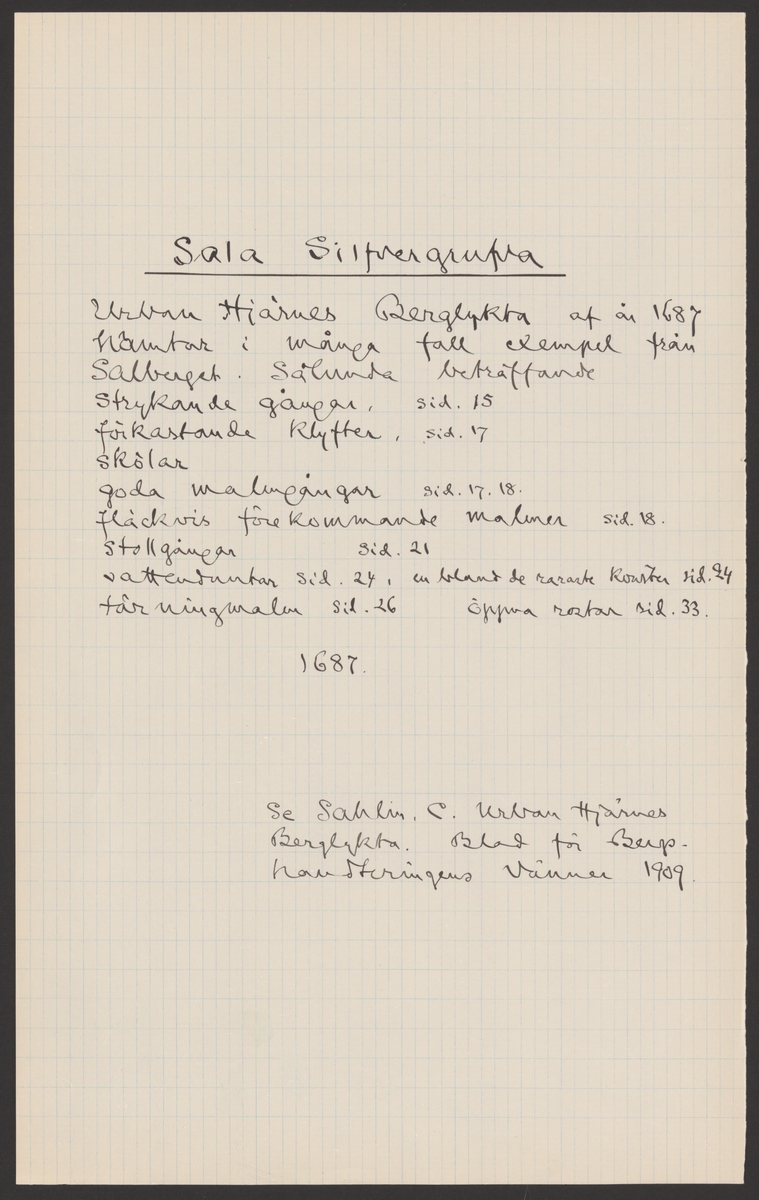 Sala Silfvergrufva
Urban Hjärnes Berglykta af år 1687
hämtar i många fall exempel från
Salberget. Sålunda beträffande
strykande gångar, sid. 15
förkastande klyfter, sid. 17
skölar
goda malmgångar sid. 17. 18.
fläckvis förekommande malmer sid. 18.
stollgångar sid. 21
vattenkonster sid. 24, en bland de raraste konster sid. 24
tärningmalm sid. 26 öppna rostar sid. 33.
1687.
Se Sahlin, C. Urban Hjärnes
Berglykta. Blad för Bergs-
handteringens Vänner 1909.